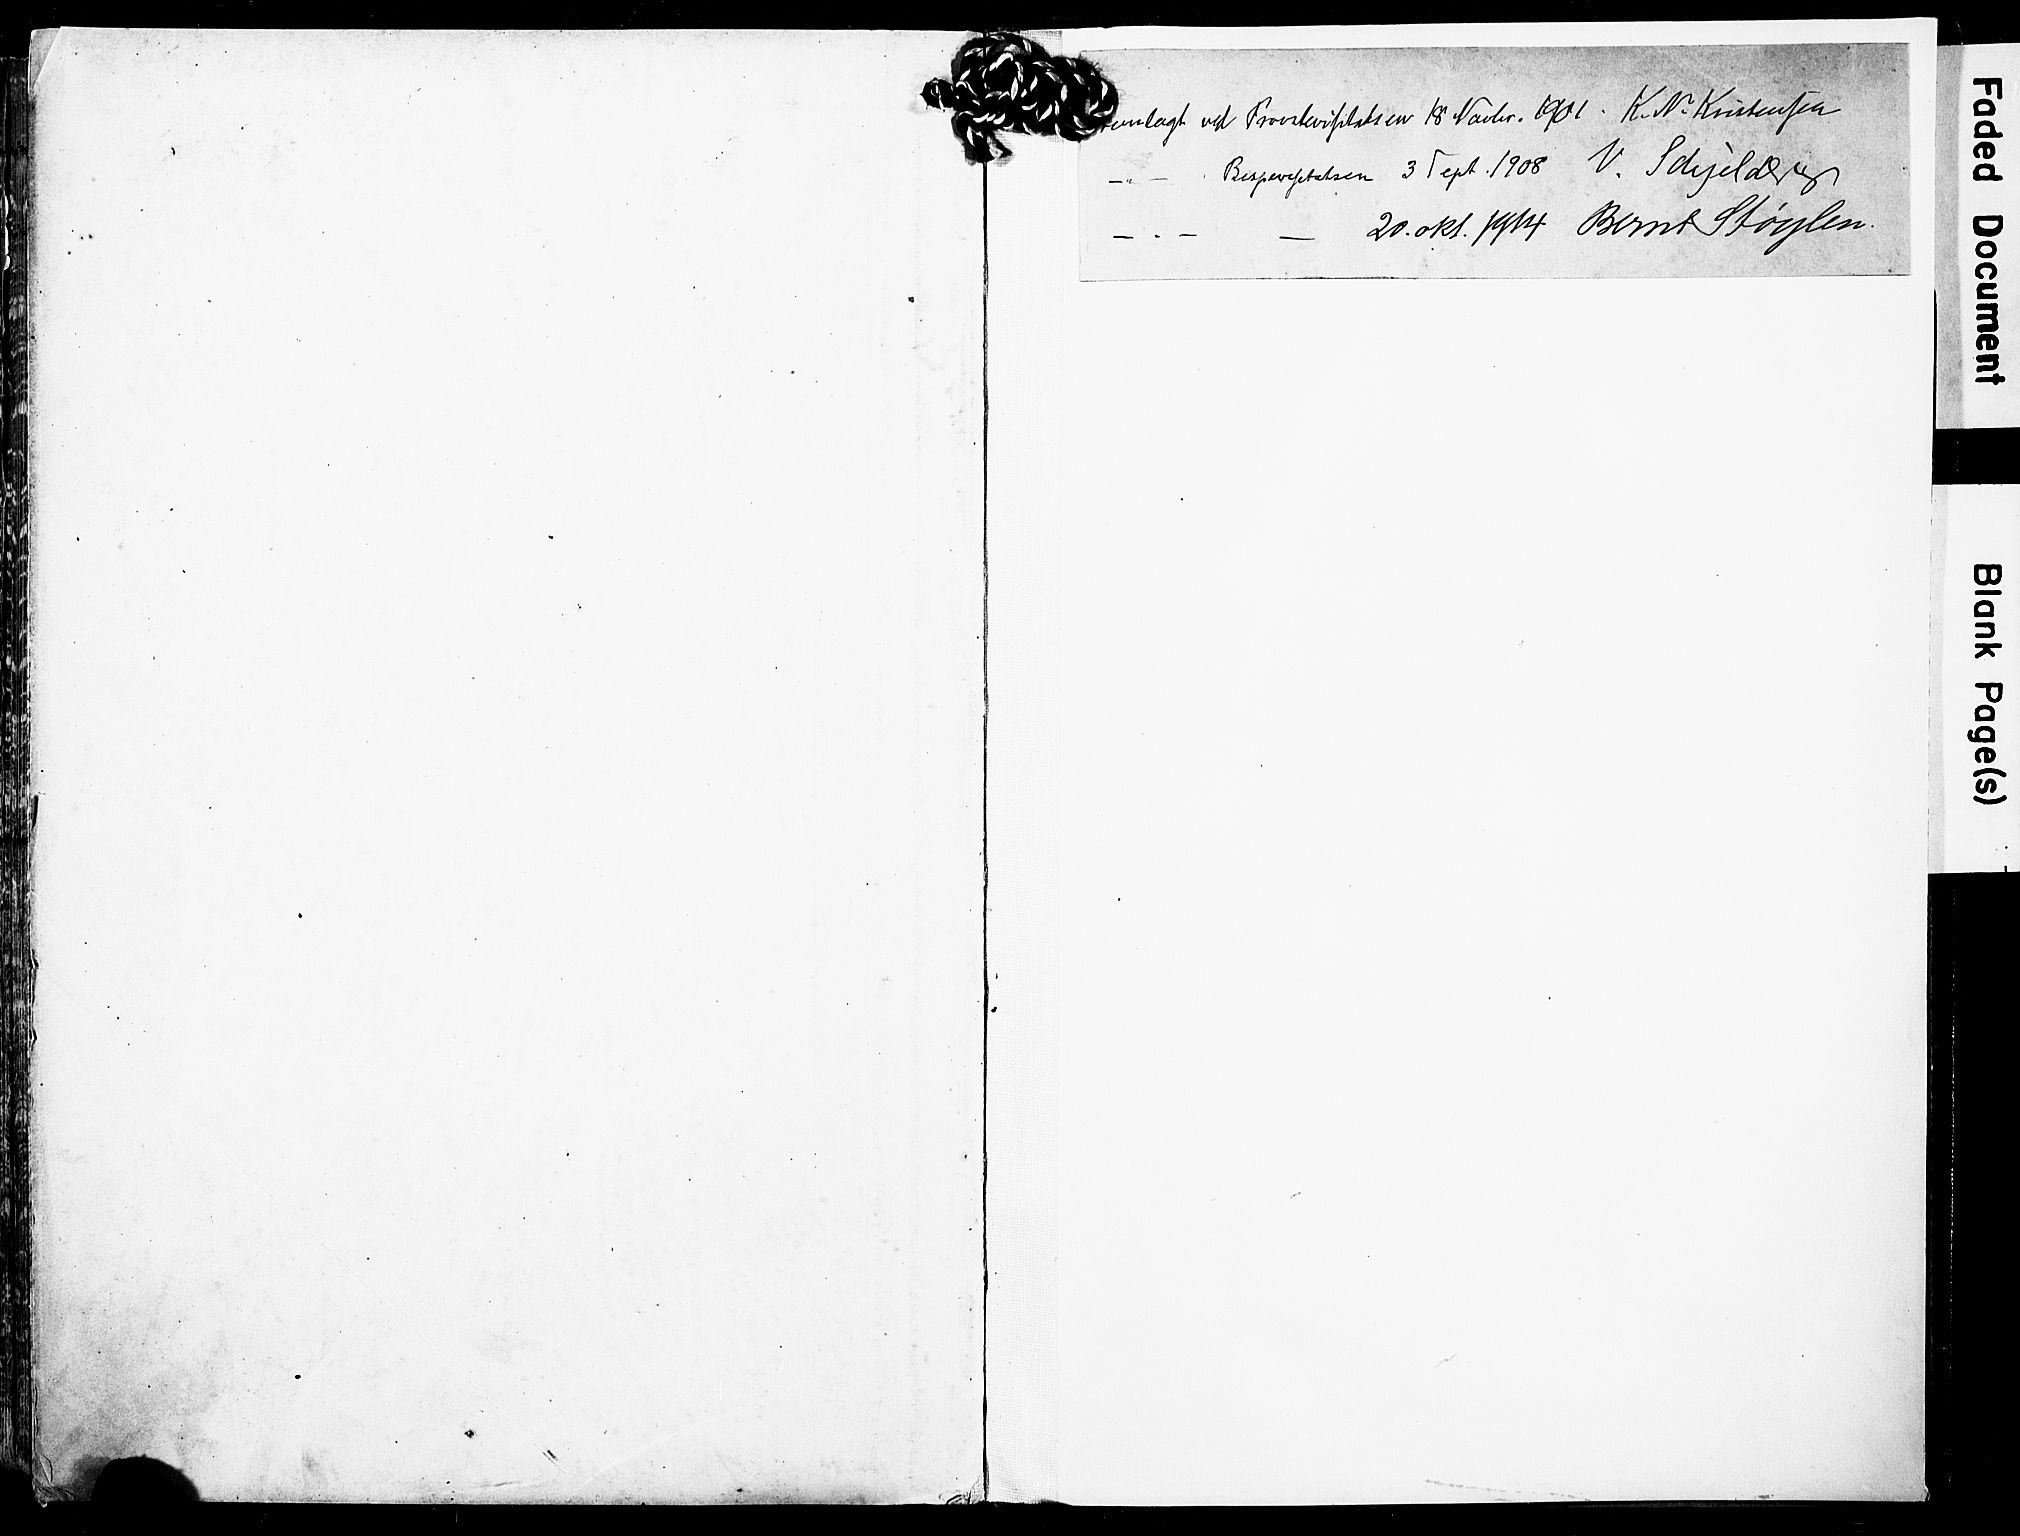 Fremlagt ved Provstevisitatsen 18 Novbr. 1901. K. N. Kristensen
— „ — Bispevisitatsen 3 Sept. 1908 V. Schjelderup
— . — — 20. okt. 1914 Bernt Støylen.
Faded Document
Blank Page(s)